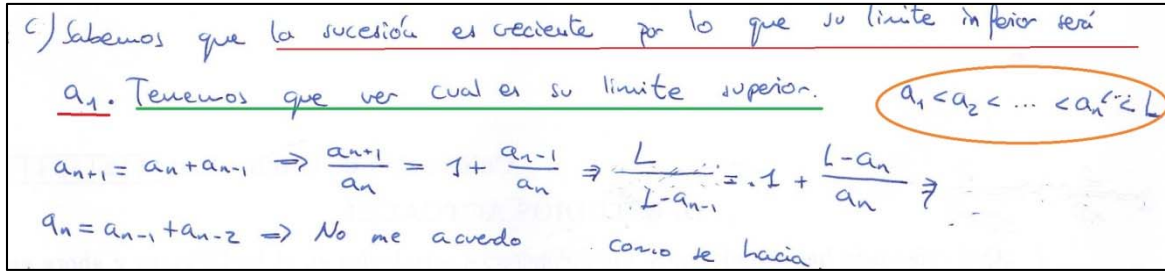 c) Sabemos que la sucesión es creciente por lo que su limite inferior será
a₁. Tenemos que ver cual es su limite superior. a₁ < a₂ < ... < aₙ < ... < L
aₙ₊₁ = aₙ + aₙ₋₁ ⇒ aₙ₊₁/aₙ = 1 + aₙ₋₁/aₙ ⇒ L/(L-aₙ₋₁) = 1 + (L-aₙ)/aₙ ⇒
aₙ = aₙ₋₁ + aₙ₋₂ ⇒ No me acuerdo como se hacia.